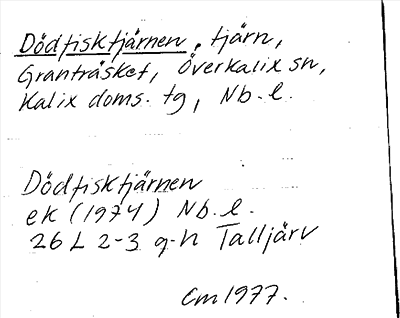 Dödfisktjärnen, tjärn,
Granträsket, Överkalix sn,
Kalix doms. tg, Nb. l.
Dödfisktjärnen
ek (1974) Nb. l.
26 L 2-3 g-h Talljärv
Cm 1977.